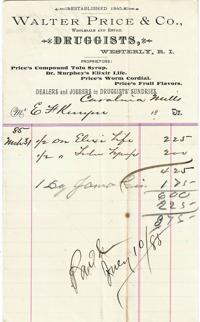 ESTABLISHED 1840.
WALTER PRICE & CO.,
WHOLESALE AND RETAIL
DRUGGISTS,
WESTERLY, R. I.
PROPRIETORS:
Price's Compound Tolu Syrup.
Dr. Murphey's Elixir Life.
Price's Worm Cordial.
Price's Fruit Flavors.
DEALERS and JOBBERS in DRUGGISTS' SUNDRIES.
Carolina Mills
E H Kenyon 18 Dr.
85
Mch 31 Elixir Life 225
" Tolu Syrup 200
425
1 Dz Jama Gin 175
600
225
Paid
July 10/85